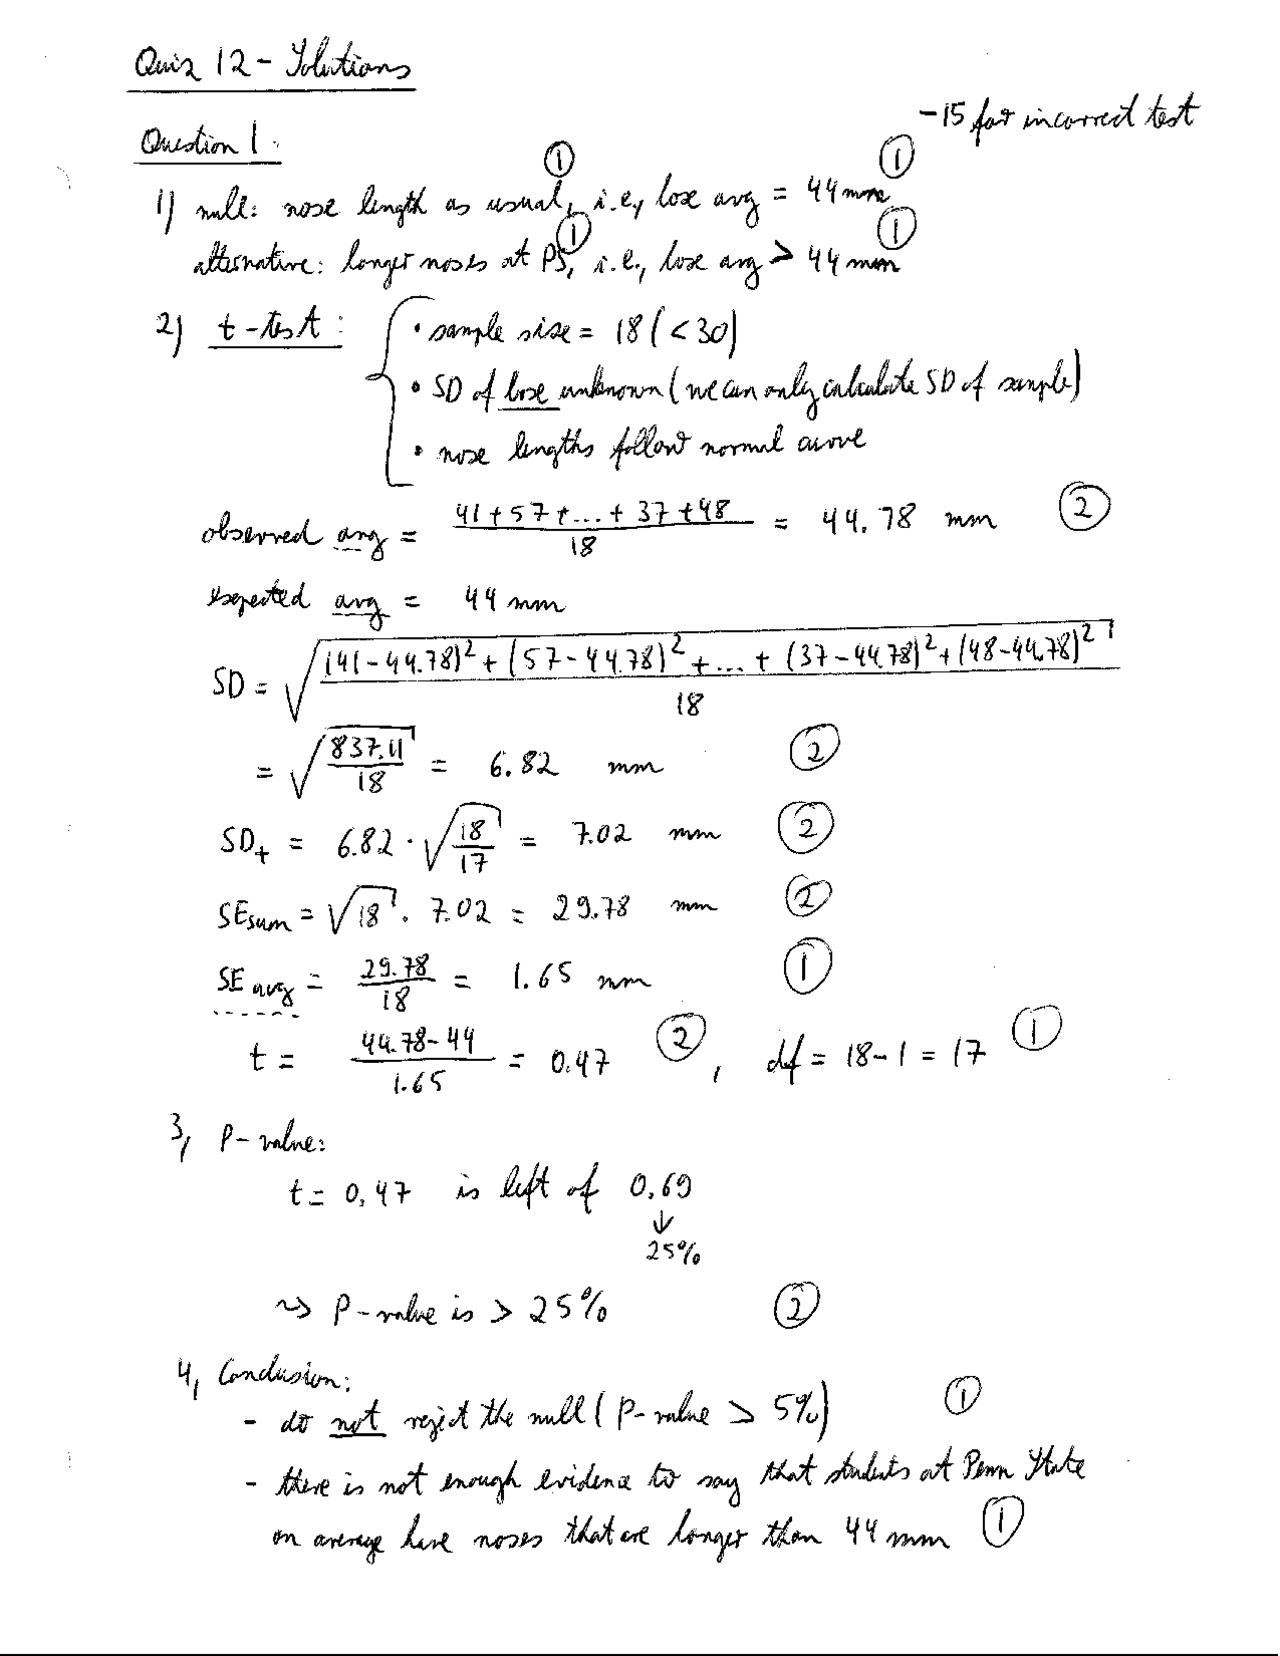 Quiz 12 - Solutions
-15 for incorrect test
Question 1:
① ①
1) null: nose length as usual, i.e., box avg = 44 mm
① ①
alternative: longer noses at PS, i.e., box avg > 44 mm
2) t-test: • sample size = 18 (<30)
• SD of box unknown (we can only calculate SD of sample)
• nose lengths follow normal curve
observed avg = (41+57+...+37+48)/18 = 44.78 mm ②
expected avg = 44 mm
SD = √(((41-44.78)² + (57-44.78)² + ... + (37-44.78)² + (48-44.78)²)/18)
= √(837.11/18) = 6.82 mm ②
SD+ = 6.82 · √(18/17) = 7.02 mm ②
SEsum = √18 · 7.02 = 29.78 mm ②
SEavg = 29.78/18 = 1.65 mm ①
t = (44.78-44)/1.65 = 0.47 ②, df = 18-1 = 17 ①
3, P-value:
t = 0,47 is left of 0,69
↓
25%
⇝ P-value is > 25% ②
4, Conclusion:
- do not reject the null (P-value > 5%) ①
- there is not enough evidence to say that students at Penn State
on average have noses that are longer than 44 mm ①